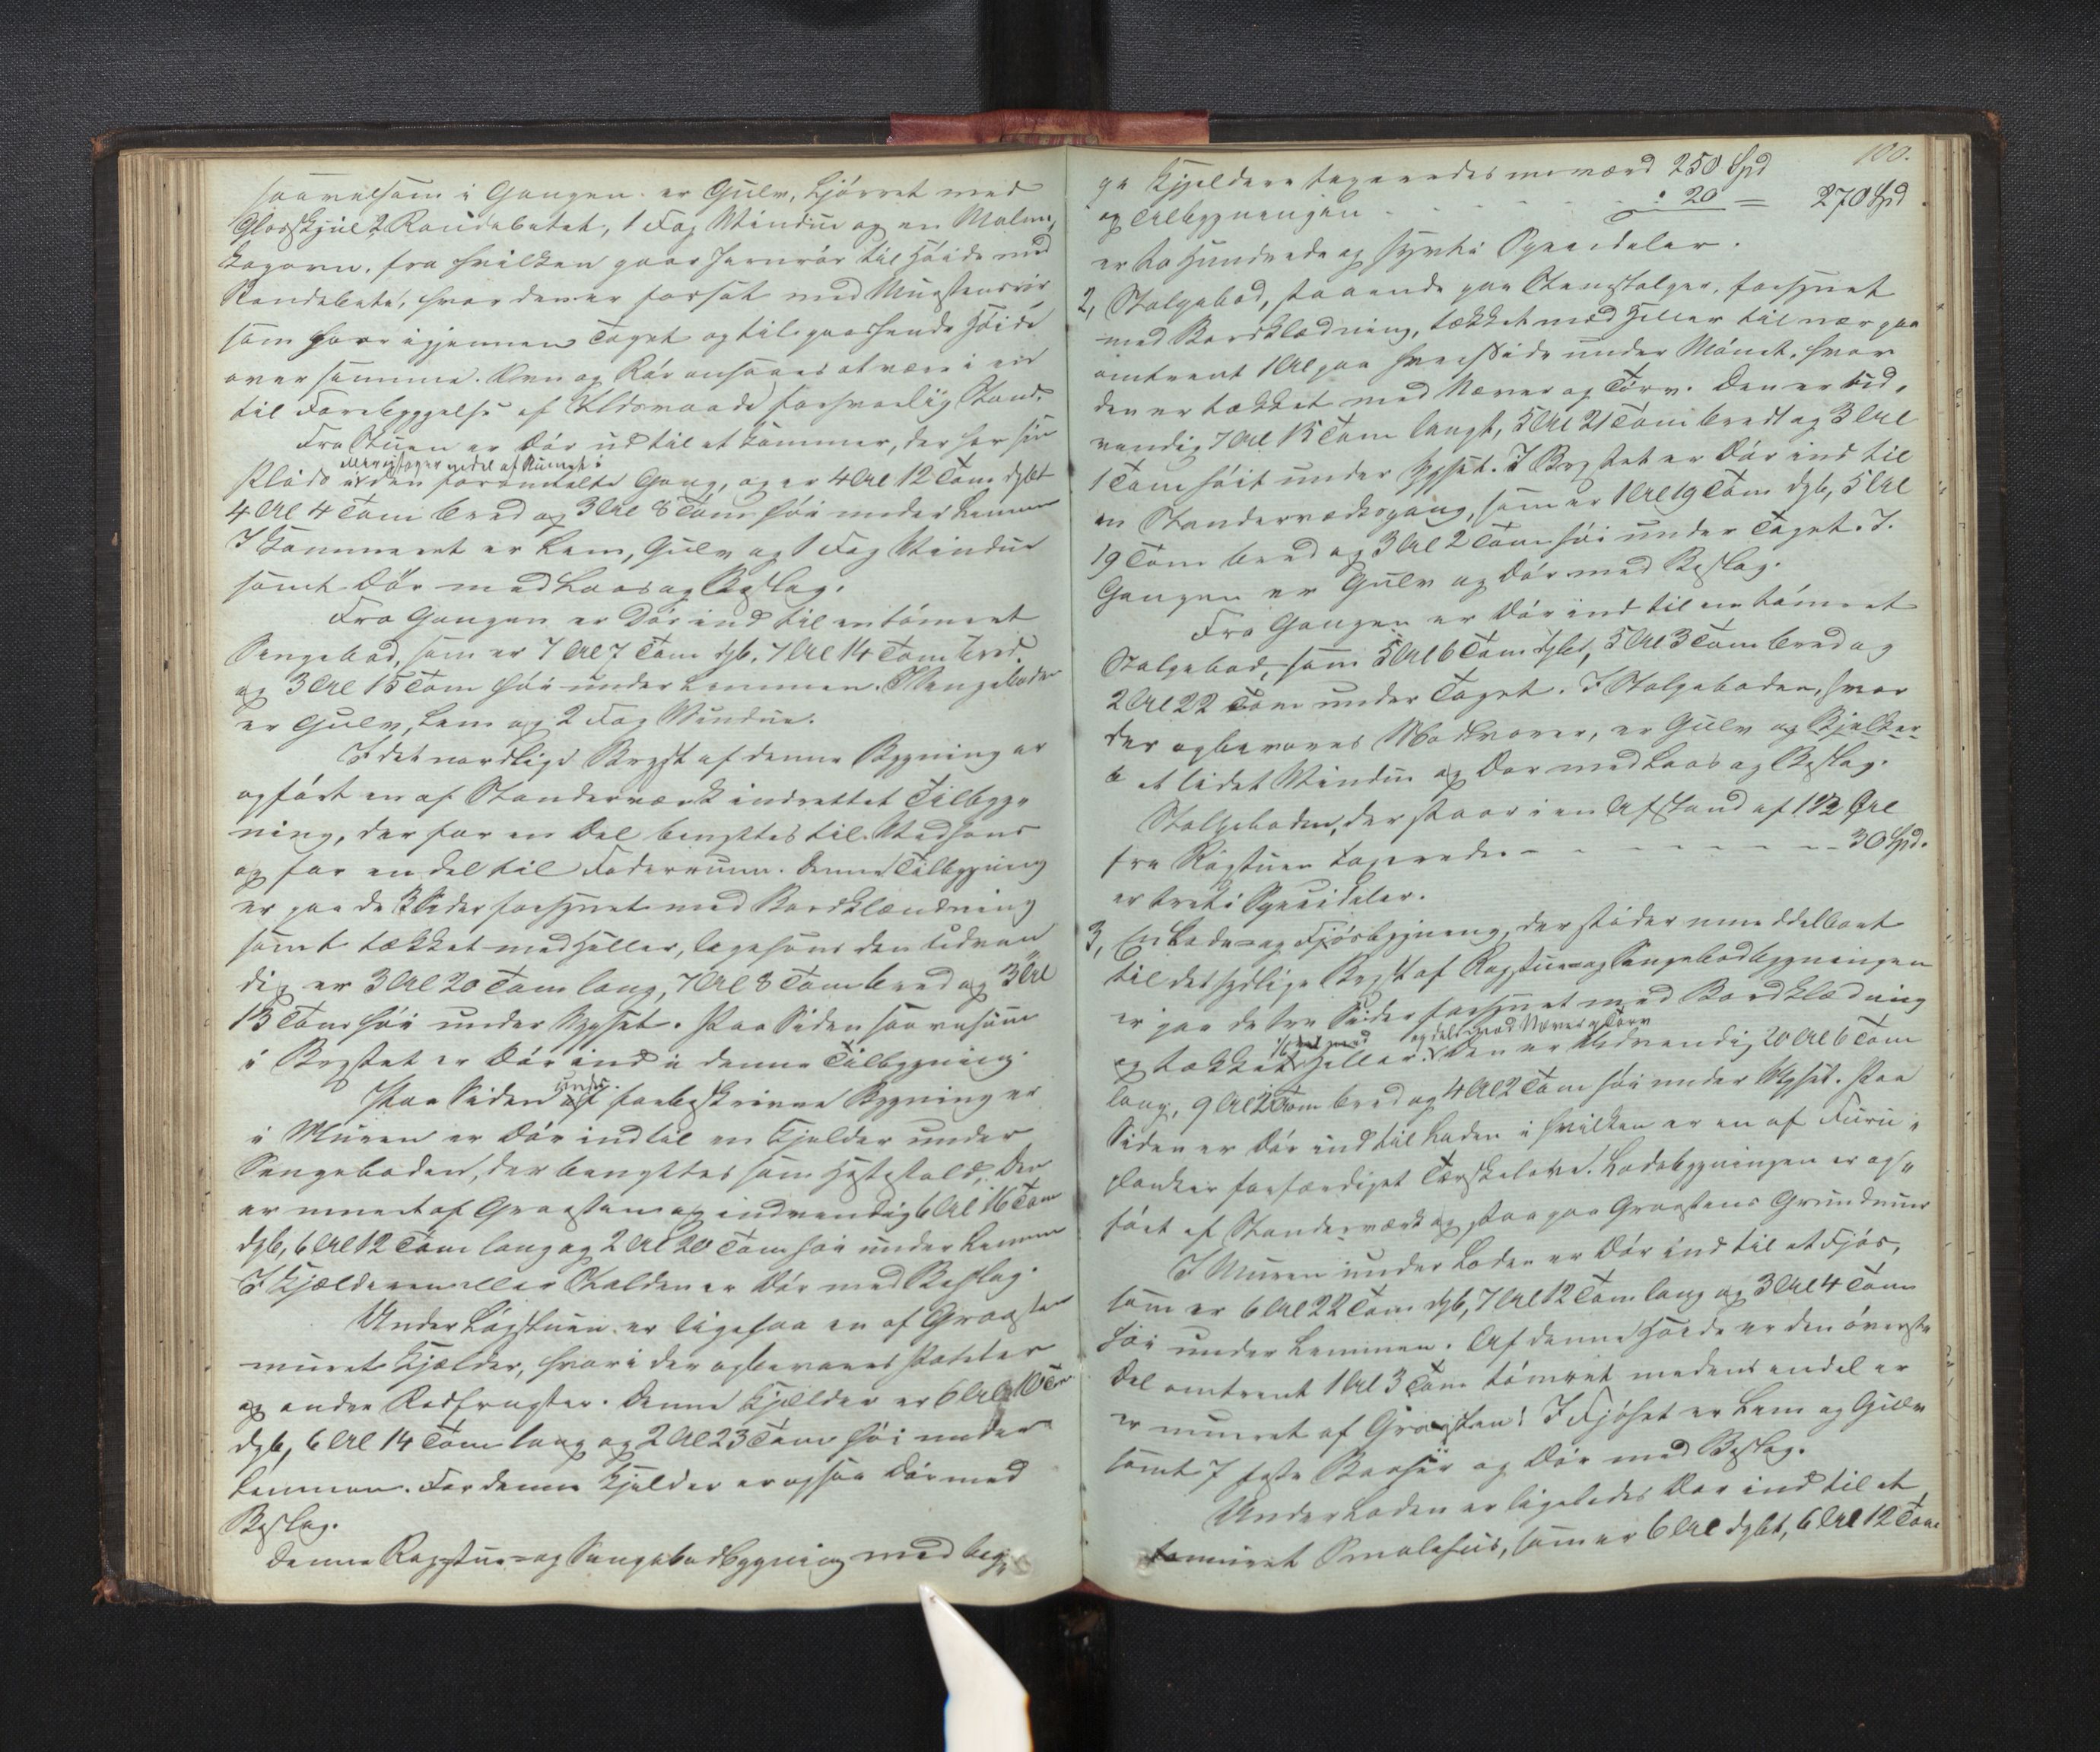 saavelsom i Gangen er Gulv,
2 Raudebeter, 1 Fag Vindue og en Malm,
kogovn, fra hvilken gaar Jernrør til Høide med
Raudebete, hvor den er forsat med Muurstensrør
som gaar igjennem Taget og til passende Høide
over samme. Ovn og Rør ansaaes at være i en
til Forebyggelse af Ildsvaade forsvarlig Stand.
Fra Stuen er Dør ud til et Kammer, der har sin
Plads i den foromtalte Gang, og er 4 Al 12 Tom dybt
4 Al 4 Tom bred og 3 Al 8 Tom høi under Lemmen
I Kammeret er Lem, Gulv og 1 Fag Vindue
samt Dør med Laas og Beslag.
Fra Gangen er Dør ind til en tømret
Sengebod, som er 7 Al 7 Tom dyb, 7 Al 14 Tom bred
og 3 Al 15 Tom høi under Lemmen. I Sengeboden
er Gulv, Lem og 2 Fag Vindue.
I det nordlige Bryst af denne Bygning er
opført en af Standerværk indrettet Tilbyg„
ning, der for en Del benyttes til Vedhuus
og for en del til Foderrum. Denne Tilbygning
er paa de 3 Sider forsynet med Bordklædning
samt tækket med Heller, ligesom den udven„
dig er 3 Al 20 Tom lang, 7 Al 8 Tom bred og 3 Al
13 Tom høi under Gyset. Paa Siden saavelsom
i Brystet er Dør ind i denne Tilbygning.
Paa Siden under forbeskrevne Bygning er
i Muren er Dør ind til en Kjelder under
Sengeboden, der benyttes som Hestestald, Den
er muret af Graasten og indvendig 6 Al 16 Tom
dyb, 6 Al 12 Tom lang og 2 Al 20 Tom høi under Lemmen
I Kjælderen eller Stalden er Dør med Beslag.
Under Røgstuen er ligesaa en af Graasten
muret Kjælder, hvori der opbevares Poteter
og andre Rodfrugter. Denne Kjælder er 6 Al 10 Tom
dyb, 6 Al 14 Tom lang og 2 Al 23 Tom høi under
Lemmen. For denne Kjelder er ogsaa Dør med
Beslag.
Denne Røgstue= og Sengebodbygning med beg„
100.
ge Kjeldere taxeredes 250 Spd
og Tilbygningen - - - - : 20 = 270 Spd
er to Hundrede og sytti Speciedaler.
2, Stolpebod, staaende paa Stenstolper, forsynet
med Bordklædning, tækket med Heller til nær paa
omtrent 1 Al paa hver Side under Mønet, hvor
den er tækket med Næver og Tørv. Den er ud„
vendig 7 Al 15 Tom langt, 5 Al 21 Tom bredt og 3 Al
1 Tom høit under Gyset. I Brystet er Dør ind til
en Standerværksgang, som er 1 Al 19 Tom dyb, 5 Al
19 Tom bred og 3 Al 2 Tom høi under Taget. I
Gangen er Gulv og Dør med Beslag.
Fra Gangen er Dør ind til en tømret
Stolpebod, som 5 Al 6 Tom dybt, 5 Al 3 Tom bred og
2 Al 22 Tom under Taget. I Stolpeboden, hvor
der opbevares Madvarer, er Gulv og Bjelker
et lidet Vindue og Dør med Laas og Beslag.
Stolpeboden, der staar i en Afstand af 12 Al
fra Røgstuen taxeredes - - - - - 30 Spd.
er treti Speciedaler.
3, En Lade= og Fjøsbygning, der støder umiddelbart
til det sydlige Bryst af Røgstue= og Sengebodbygningen
er paa de tre Sider forsynet med Bordklædning
og dels med Næver og Tørv
og tækket Heller. Den er udvendig 20 Al 6 Tom
lang, 9 Al 2 Tom bred og 4 Al 2 Tom høi under Gyset. Paa
Siden er Dør ind til Laden i hvilken er en af Furu„
planker forfærdiget Tærskelove. Ladebygningen er op„
ført af Standerværk og staar paa Graastens Grundmur
I Muren under Laden er Dør ind til et Fjøs,
som er 6 Al 22 Tom dyb, 7 Al 12 Tom lang og 3 Al 4 Tom
høi under Lemmen. Af denne Høide er den øverste
Del omtrent 1 Al 3 Tom tømret medens endel er
er muret af Graasten. I Fjøset er Lem og Gulv
samt 7 faste Baaser og Dør med Beslag.
Under Laden er ligeledes Dør ind til et
tømmret Smalehus, som er 6 Al dybt, 6 Al 12 Tom